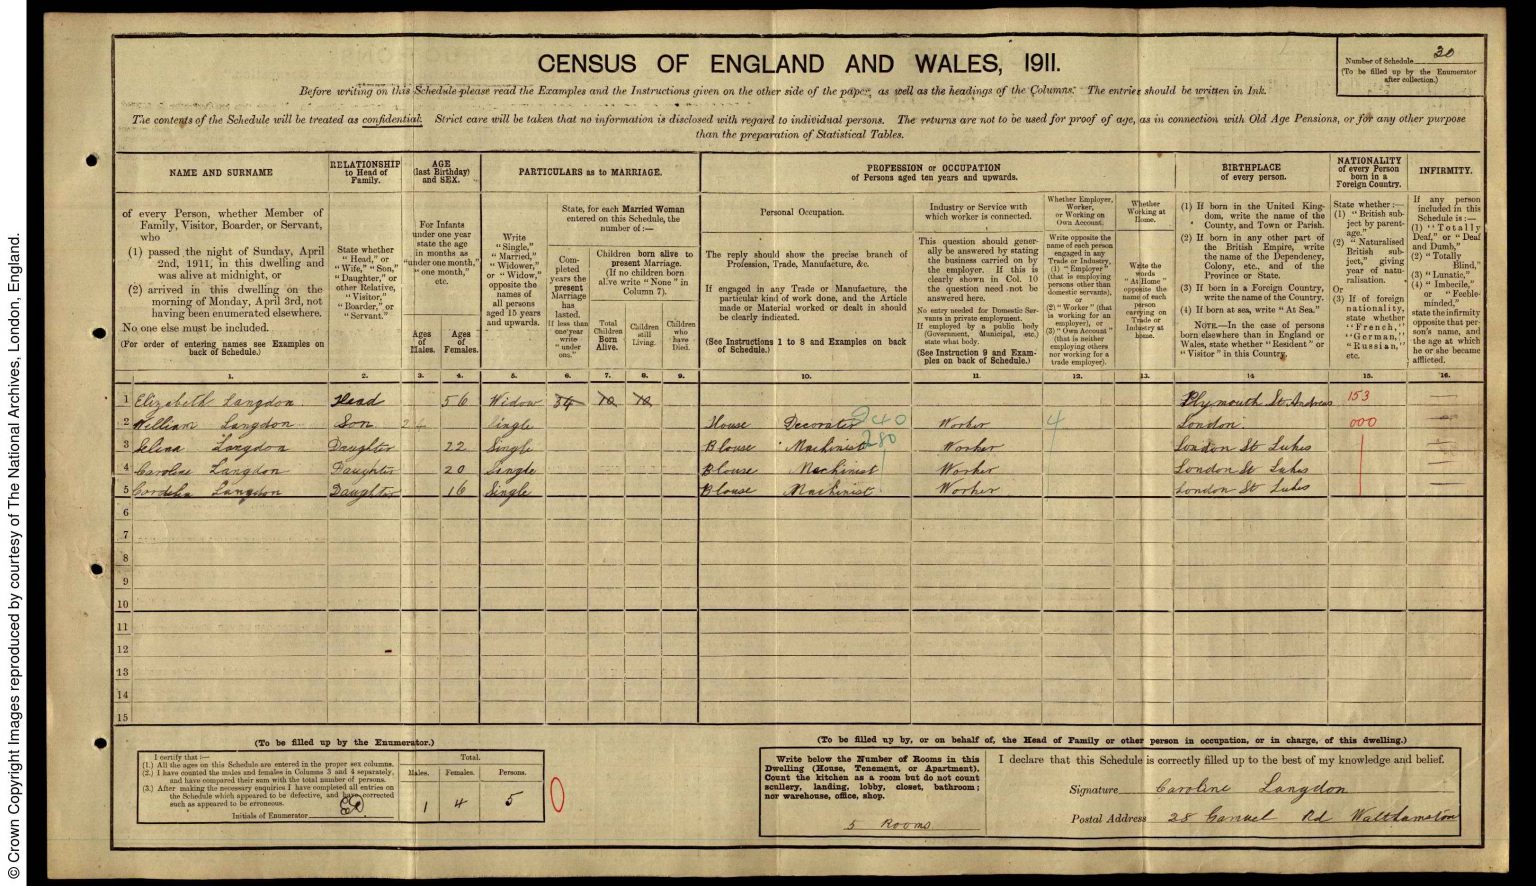 © Crown Copyright Images reproduced by courtesy of The National Archives, London, England.
CENSUS OF ENGLAND AND WALES, 1911.
Number of Schedule 30
(To be filled up by the Enumerator
after collection.)
Before writing on this Schedule please read the Examples and the Instructions given on the other side of the paper, as well as the headings of the Columns. The entries should be written in Ink.
The contents of the Schedule will be treated as confidential. Strict care will be taken that no information is disclosed with regard to individual persons. The returns are not to be used for proof of age, as in connection with Old Age Pensions, or for any other purpose
than the preparation of Statistical Tables.
NAME AND SURNAME
of every Person, whether Member of
Family, Visitor, Boarder, or Servant,
who
(1) passed the night of Sunday, April
2nd, 1911, in this dwelling and
was alive at midnight, or
(2) arrived in this dwelling on the
morning of Monday, April 3rd, not
having been enumerated elsewhere.
No one else must be included.
(For order of entering names see Examples on
back of Schedule.)
RELATIONSHIP
to Head of
Family.
State whether
"Head," or
"Wife," "Son,"
"Daughter," or
other Relative,
"Visitor,"
"Boarder," or
"Servant."
AGE
(last Birthday)
and SEX.
For Infants
under one year
state the age
in months as
"under one month,"
"one month,"
etc.
Ages
of
Males.
Ages
of
Females.
PARTICULARS as to MARRIAGE.
Write
"Single,"
"Married,"
"Widower,"
or "Widow,"
opposite the
names of
all persons
aged 15 years
and upwards.
State, for each Married Woman
entered on this Schedule, the
number of:—
Com-
pleted
years the
present
Marriage
has
lasted.
If less than
one year
write
"under
one."
Children born alive to
present Marriage.
(If no children born
alive write "None" in
Column 7).
Total
Children
Born
Alive.
Children
still
Living.
Children
who
have
Died.
PROFESSION or OCCUPATION
of Persons aged ten years and upwards.
Personal Occupation.
The reply should show the precise branch of
Profession, Trade, Manufacture, &c.
If engaged in any Trade or Manufacture, the
particular kind of work done, and the Article
made or Material worked or dealt in should
be clearly indicated.
(See Instructions 1 to 8 and Examples on back
of Schedule.)
Industry or Service with
which worker is connected.
This question should gener-
ally be answered by stating
the business carried on by
the employer. If this is
clearly shown in Col. 10
the question need not be
answered here.
No entry needed for Domestic Ser-
vants in private employment.
If employed by a public body
(Government, Municipal, etc.)
state what body.
(See Instruction 9 and Exam-
ples on back of Schedule.)
Whether Employer,
Worker,
or Working on
Own Account.
Write opposite the
name of each person
engaged in any
Trade or Industry,
(1) "Employer"
(that is employing
persons other than
domestic servants),
or
(2) "Worker" (that
is working for an
employer), or
(3) "Own Account"
(that is neither
employing others
nor working for a
trade employer).
Whether
Working at
Home.
Write the
words
"At Home"
opposite the
name of each
person
carrying on
Trade or
Industry at
home.
BIRTHPLACE
of every person.
(1) If born in the United King-
dom, write the name of the
County, and Town or Parish.
(2) If born in any other part of
the British Empire, write
the name of the Dependency,
Colony, etc., and of the
Province or State.
(3) If born in a Foreign Country,
write the name of the Country.
(4) If born at sea, write "At Sea."
NOTE.—In the case of persons
born elsewhere than in England or
Wales, state whether "Resident" or
"Visitor" in this Country.
NATIONALITY
of every Person
born in a
Foreign Country.
State whether:—
(1) "British sub-
ject by parent-
age."
(2) "Naturalised
British sub-
ject," giving
year of natu-
ralisation.
Or
(3) If of foreign
nationality,
state whether
"French,"
"German,"
"Russian,"
etc.
INFIRMITY.
If any person
included in this
Schedule is:—
(1) "Totally
Deaf," or "Deaf
and Dumb,"
(2) "Totally
Blind,"
(3) "Lunatic,"
(4) "Imbecile,"
or "Feeble-
minded,"
state the infirmity
opposite that per-
son's name, and
the age at which
he or she became
afflicted.
1. 2. 3. 4. 5. 6. 7. 8. 9. 10. 11. 12. 13. 14 15. 16.
1 Elizabeth Langdon Head 56 Widow 34 10 10 Plymouth St Andrews 153
2 William Langdon Son 24 Single House Decorator 240 Worker 4 London. 000
3 Selina Langdon Daughter 22 Single Blouse Machinist 280 Worker London St Lukes
4 Caroline Langdon Daughter 20 Single Blouse Machinist Worker London St Lukes
5 Cordelia Langdon Daughter 16 Single Blouse Machinist Worker London St Lukes
6
7
8
9
10
11
12
13
14
15
(To be filled up by the Enumerator.)
I certify that:—
(1.) All the ages on this Schedule are entered in the proper sex columns.
(2.) I have counted the males and females in Columns 3 and 4 separately,
and have compared their sum with the total number of persons.
(3.) After making the necessary enquiries I have completed all entries on
the Schedule which appeared to be defective, and have corrected
such as appeared to be erroneous.
Initials of Enumerator
Total.
Males. Females. Persons.
1 4 5 0
(To be filled up by, or on behalf of, the Head of Family or other person in occupation, or in charge, of this dwelling.)
Write below the Number of Rooms in this
Dwelling (House, Tenement, or Apartment).
Count the kitchen as a room but do not count
scullery, landing, lobby, closet, bathroom;
nor warehouse, office, shop.
5 Rooms
I declare that this Schedule is correctly filled up to the best of my knowledge and belief.
Signature Caroline Langdon
Postal Address 28 Rd Walthamstow